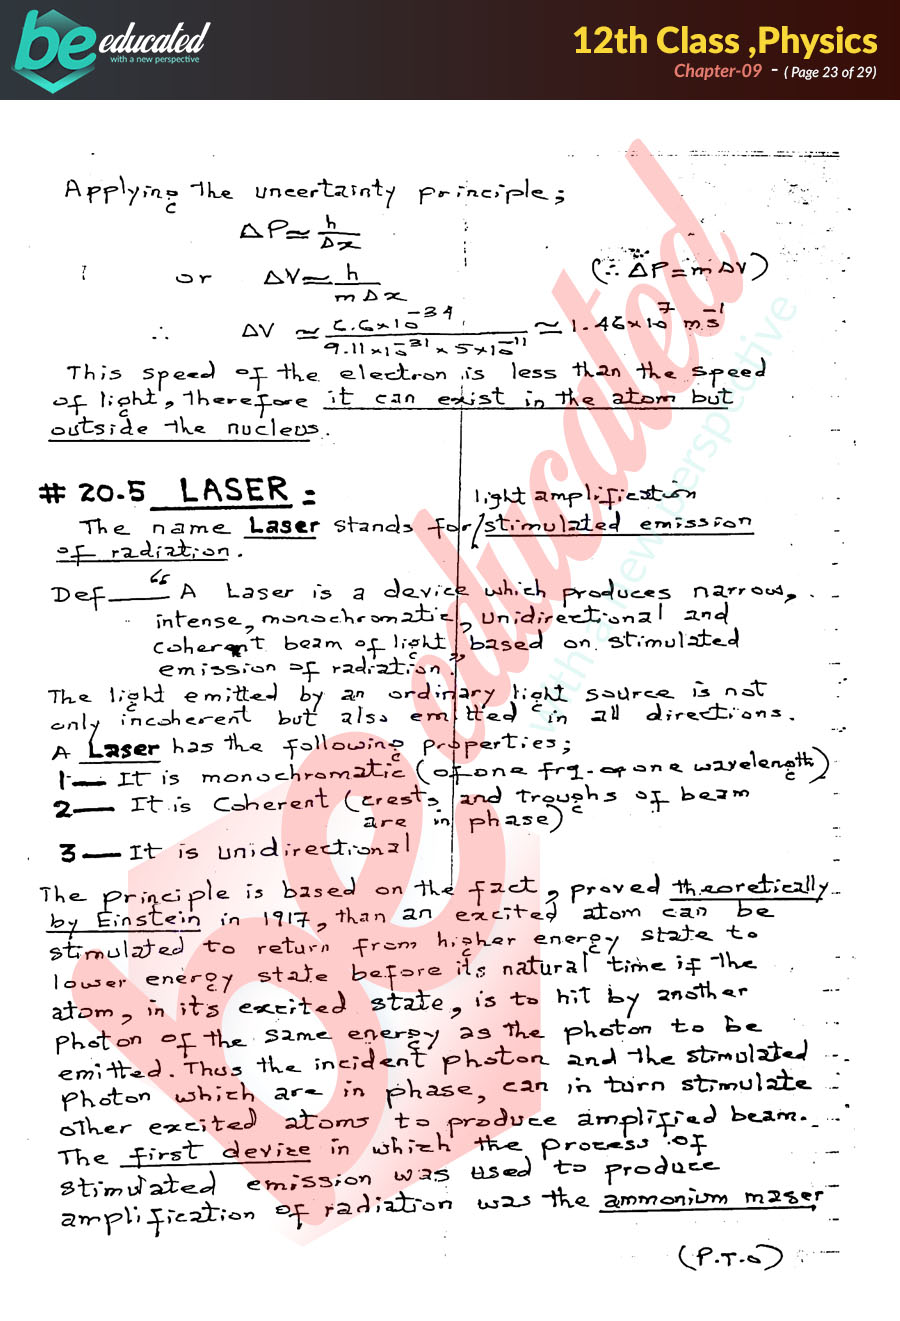 be educated
with a new perspective
12th Class ,Physics
Chapter-09 - ( Page 23 of 29)
Applying the uncertainty principle;
ΔP ≃ h/Δx
or ΔV ≃ h/mΔx (∵ ΔP = mΔV)
∴ ΔV ≃ 6.6×10⁻³⁴/9.11×10⁻³¹×5×10⁻¹¹ ≃ 1.46×10⁷ ms⁻¹
This speed of the electron is less than the speed
of light, therefore it can exist in the atom but
outside the nucleus.
# 20.5 LASER :
The name Laser stands for/light amplification
stimulated emission
of radiation.
Def — “ A Laser is a device which produces narrow,
intense, monochromatic, unidirectional and
coherent beam of light based on stimulated
emission of radiation.”
The light emitted by an ordinary light source is not
only incoherent but also emitted in all directions.
A Laser has the following properties;
1— It is monochromatic (of one frq. or one wavelength)
2— It is Coherent (crests and troughs of beam
are in phase)
3— It is unidirectional
The principle is based on the fact, proved theoretically
by Einstein in 1917, than an excited atom can be
stimulated to return from higher energy state to
lower energy state before its natural time if the
atom, in it's excited state, is to hit by another
photon of the same energy as the photon to be
emitted. Thus the incident photon and the stimulated
photon which are in phase, can in turn stimulate
other excited atoms to produce amplified beam.
The first device in which the process of
stimulated emission was used to produce
amplification of radiation was the ammonium maser
(P.T.O)
be educated
with a new perspective